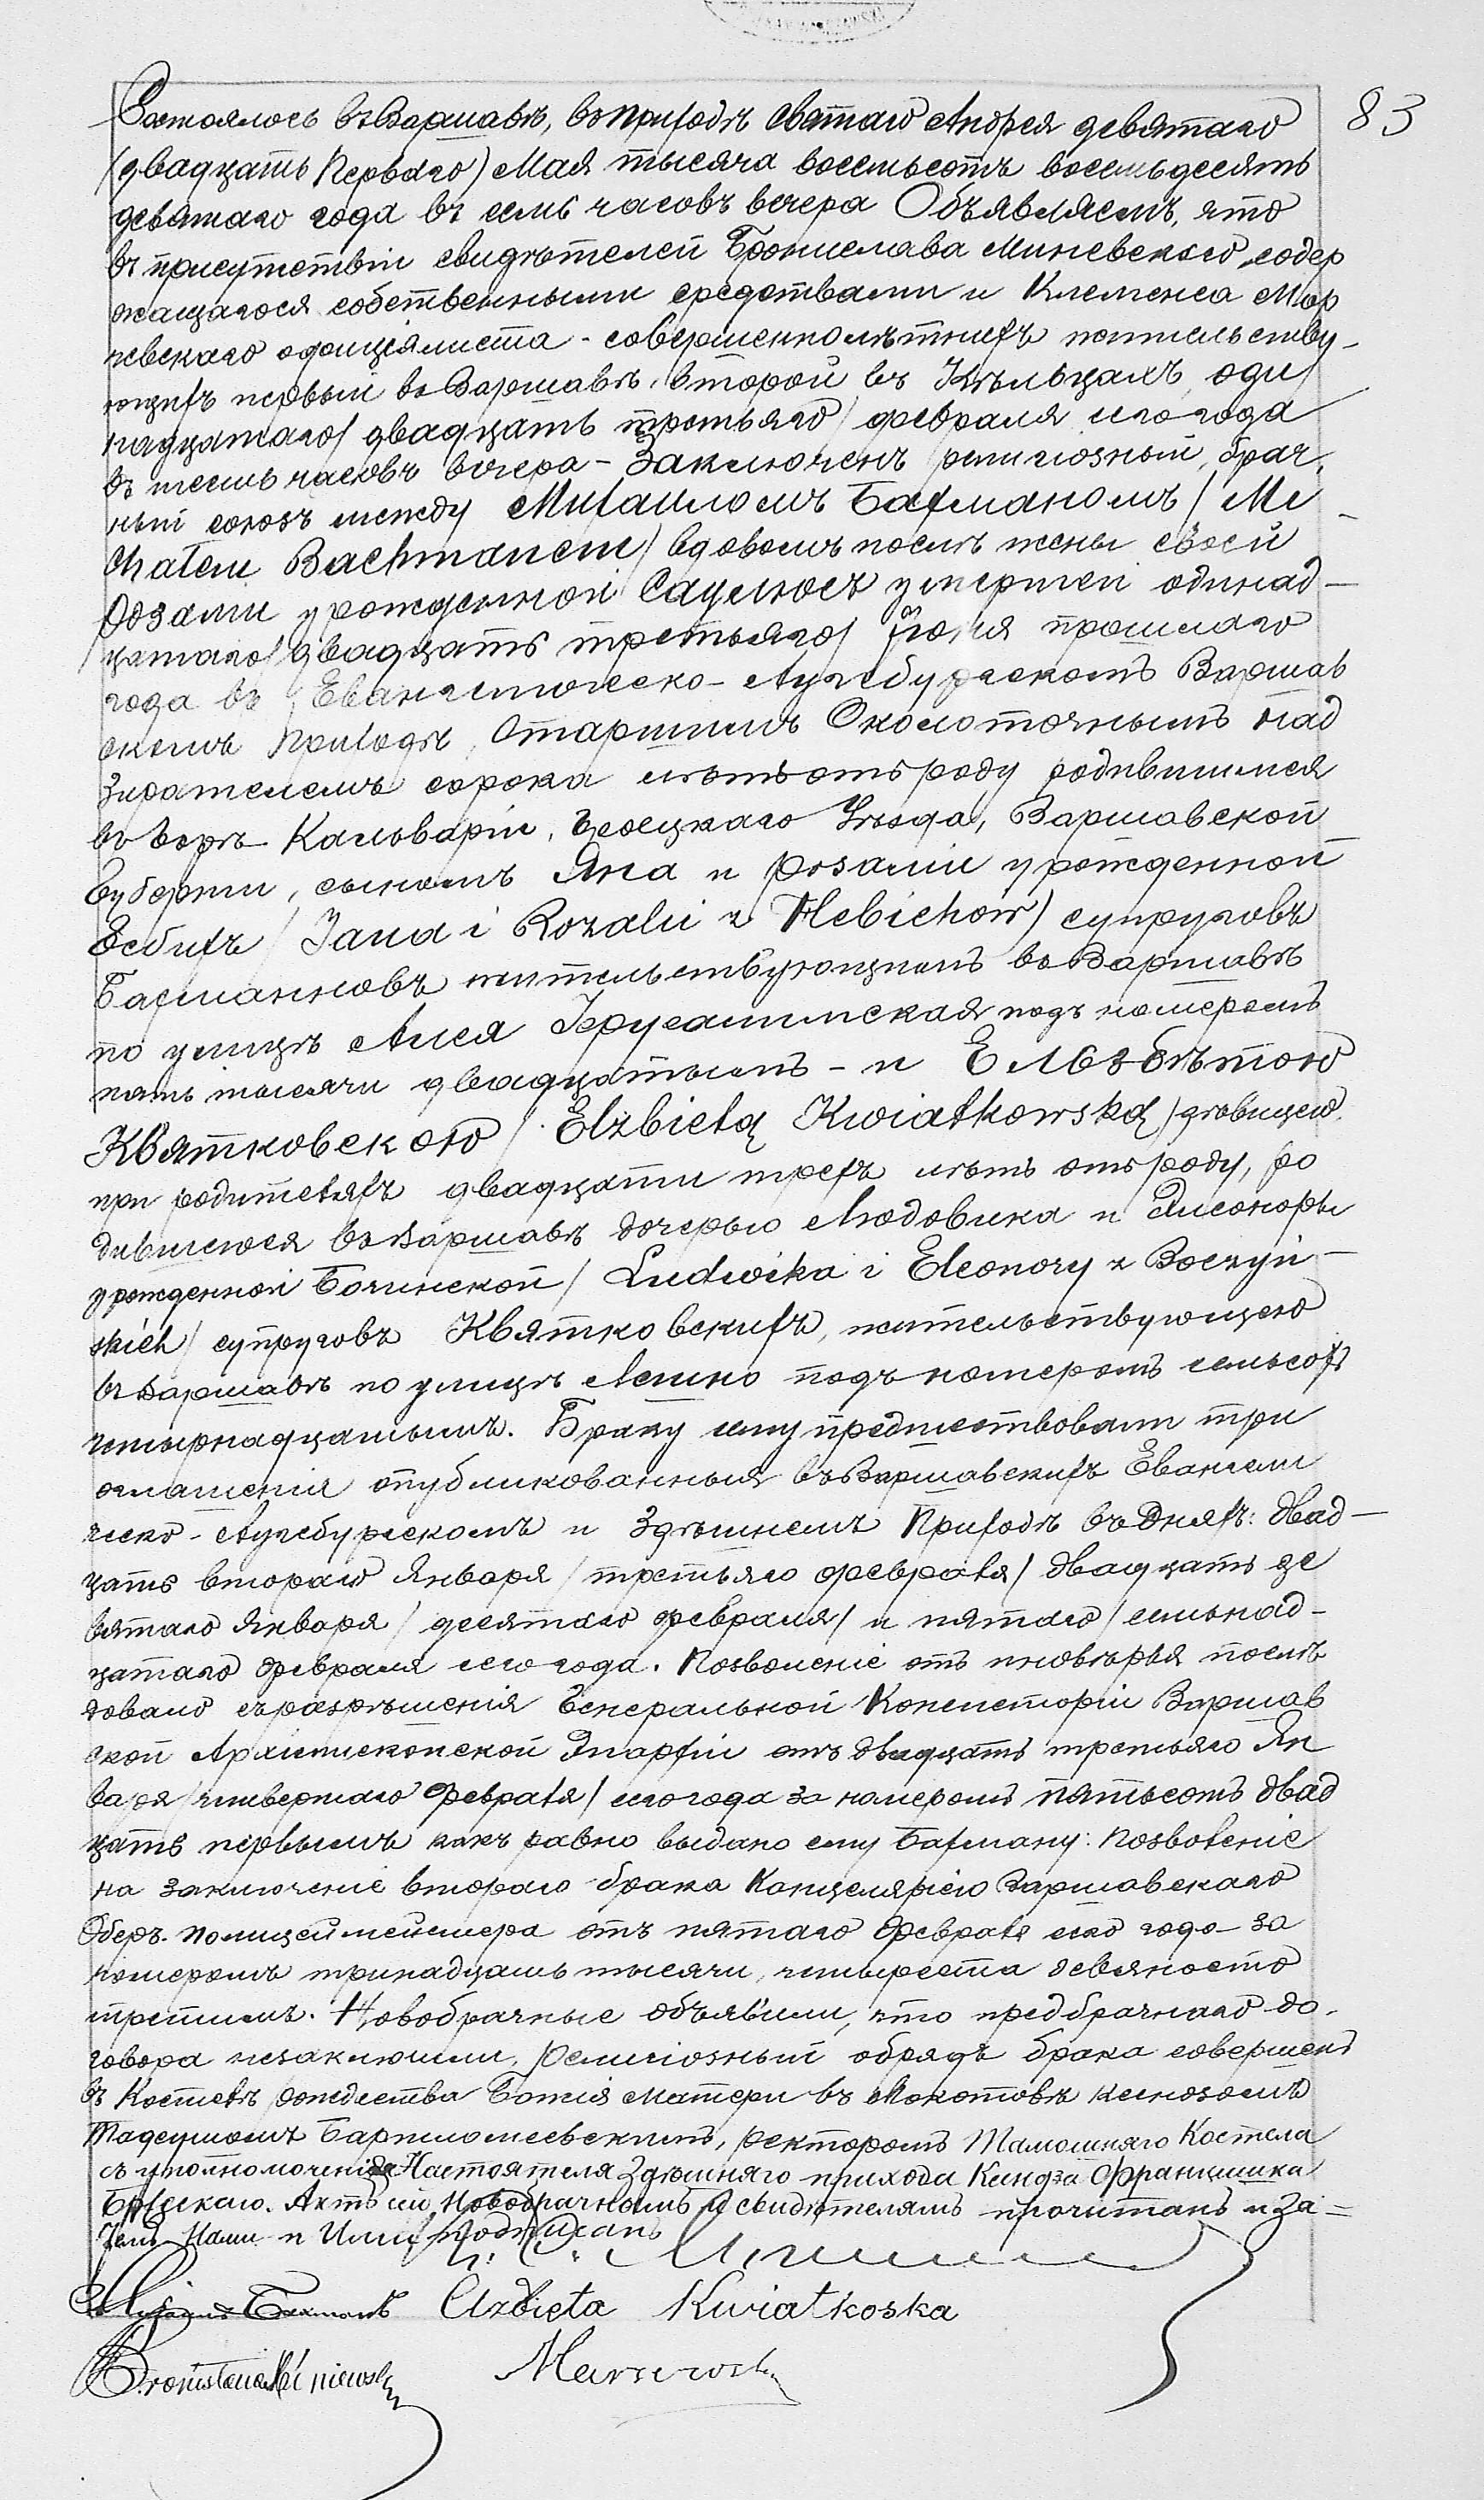 83
Состоялось въ Варшавѣ, въ приходѣ святаго Андрея девятаго
(двадцать перваго) Мая тысяча восемьсотъ восемьдесятъ
девятаго года въ семь часовъ вечера Объявляемъ, что
въ присутствіи свидѣтелей Брониславa Миневскаго, содер
жащагося собственными средствами и Клеменса Мар
чевскаго оффиціялиста - совершеннолѣтнихъ жительству-
ющихъ первый въ Варшавѣ, второй въ Кѣльцахъ, оди
надцатаго/двадцать третьяго/февраля сего года
въ шесть часовъ вечера - Заключенъ религіозный брач,
ный союзъ между Михаиломъ Бахманомъ / Mi
chałem Bachmanem/ вдовомъ послѣ жены своей
Розаліи урожденной умершей одинад-
цатаго/двадцать третьяго/ Іюня прошлаго
года въ Евангелическо-Аугсбургскомъ Варшав
скомъ Приходѣ, Старшимъ Околоточнымъ Над
зирателемъ сорока лѣтъ отъ роду родившимся
въ Горѣ-Кальваріи, Гроецкаго Уѣзда, Варшавской
Губерніи, сыномъ Яна и Розаліи урожденной
/Jana i Rozalii z супруговъ
Бахмановъ жительствующимъ въ Варшавѣ
по улицѣ Алея Іерусалимская подъ номеромъ
пять тысячи двадцатымъ - и Елизбѣтою
Квятковскою /Elżbietą Kwiatkowską/ дѣвицею
при родителяхъ двадцати трехъ лѣтъ отъ роду, ро
дившеюся въ Варшавѣ дочерью Людовика и Элеоноры
урожденной Бочинской / Ludwika i Eleonory z Boczyń-
skich/ супруговъ Квятковскихъ, жительствующею
въ Варшавѣ по улицѣ Лешно подъ номеромъ семьсотъ
четырнадцатымъ. Браку сему предшествовали три
оглашенія опубликованныя въ Варшавскихъ Евангели
ческо-Аугсбургскомъ и Здѣшнемъ Приходѣ въ Дняхъ: двад-
цать втораго Января /третьяго февраля/ двадцать де
вятаго Января / десятаго февраля/ и пятаго /семьнад-
цатаго февраля сего года. Позволеніе отъ иновѣрья послѣ
довало съ разрѣшенія Генеральной Консисторіи Варшав
ской Архіепископской Эпархіи отъ двадцать третьяго Ян
варя /четвертаго Февраля/ сего года за номеромъ пятьсотъ двад
цать первымъ какъ равно выдано ему Бахману: позволеніе
на заключеніе втораго брака Канцеляріею Варшавскаго
Оберъ-полицеймейстера отъ пятаго Февраля сего года за
номеромъ тринадцать тысячи, четыреста девяносто
третимъ. Новобрачные объявили, что предбрачнаго до-
говора незаключили. Религіозный обрядъ брака совершенъ
въ Костелѣ рождества Божія Матери въ Мокотовѣ ксендзомъ
Тадеушомъ Бартломеевскимъ, ректоромъ Тамошняго Костела
съ уполномоченія Настоятеля Здѣшняго прихода Ксендза Францишка
Актъ сей Новобрачнымъ и свидѣтелямъ прочитанъ и за=
тѣмъ Нами и Ими подписанъ
Михаилъ Бахманъ Elzbieta Kwiatkoska
Bronisław Miniewski